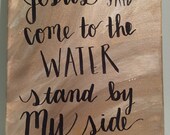 Jesus said
come to the
WATER
stand by
My side